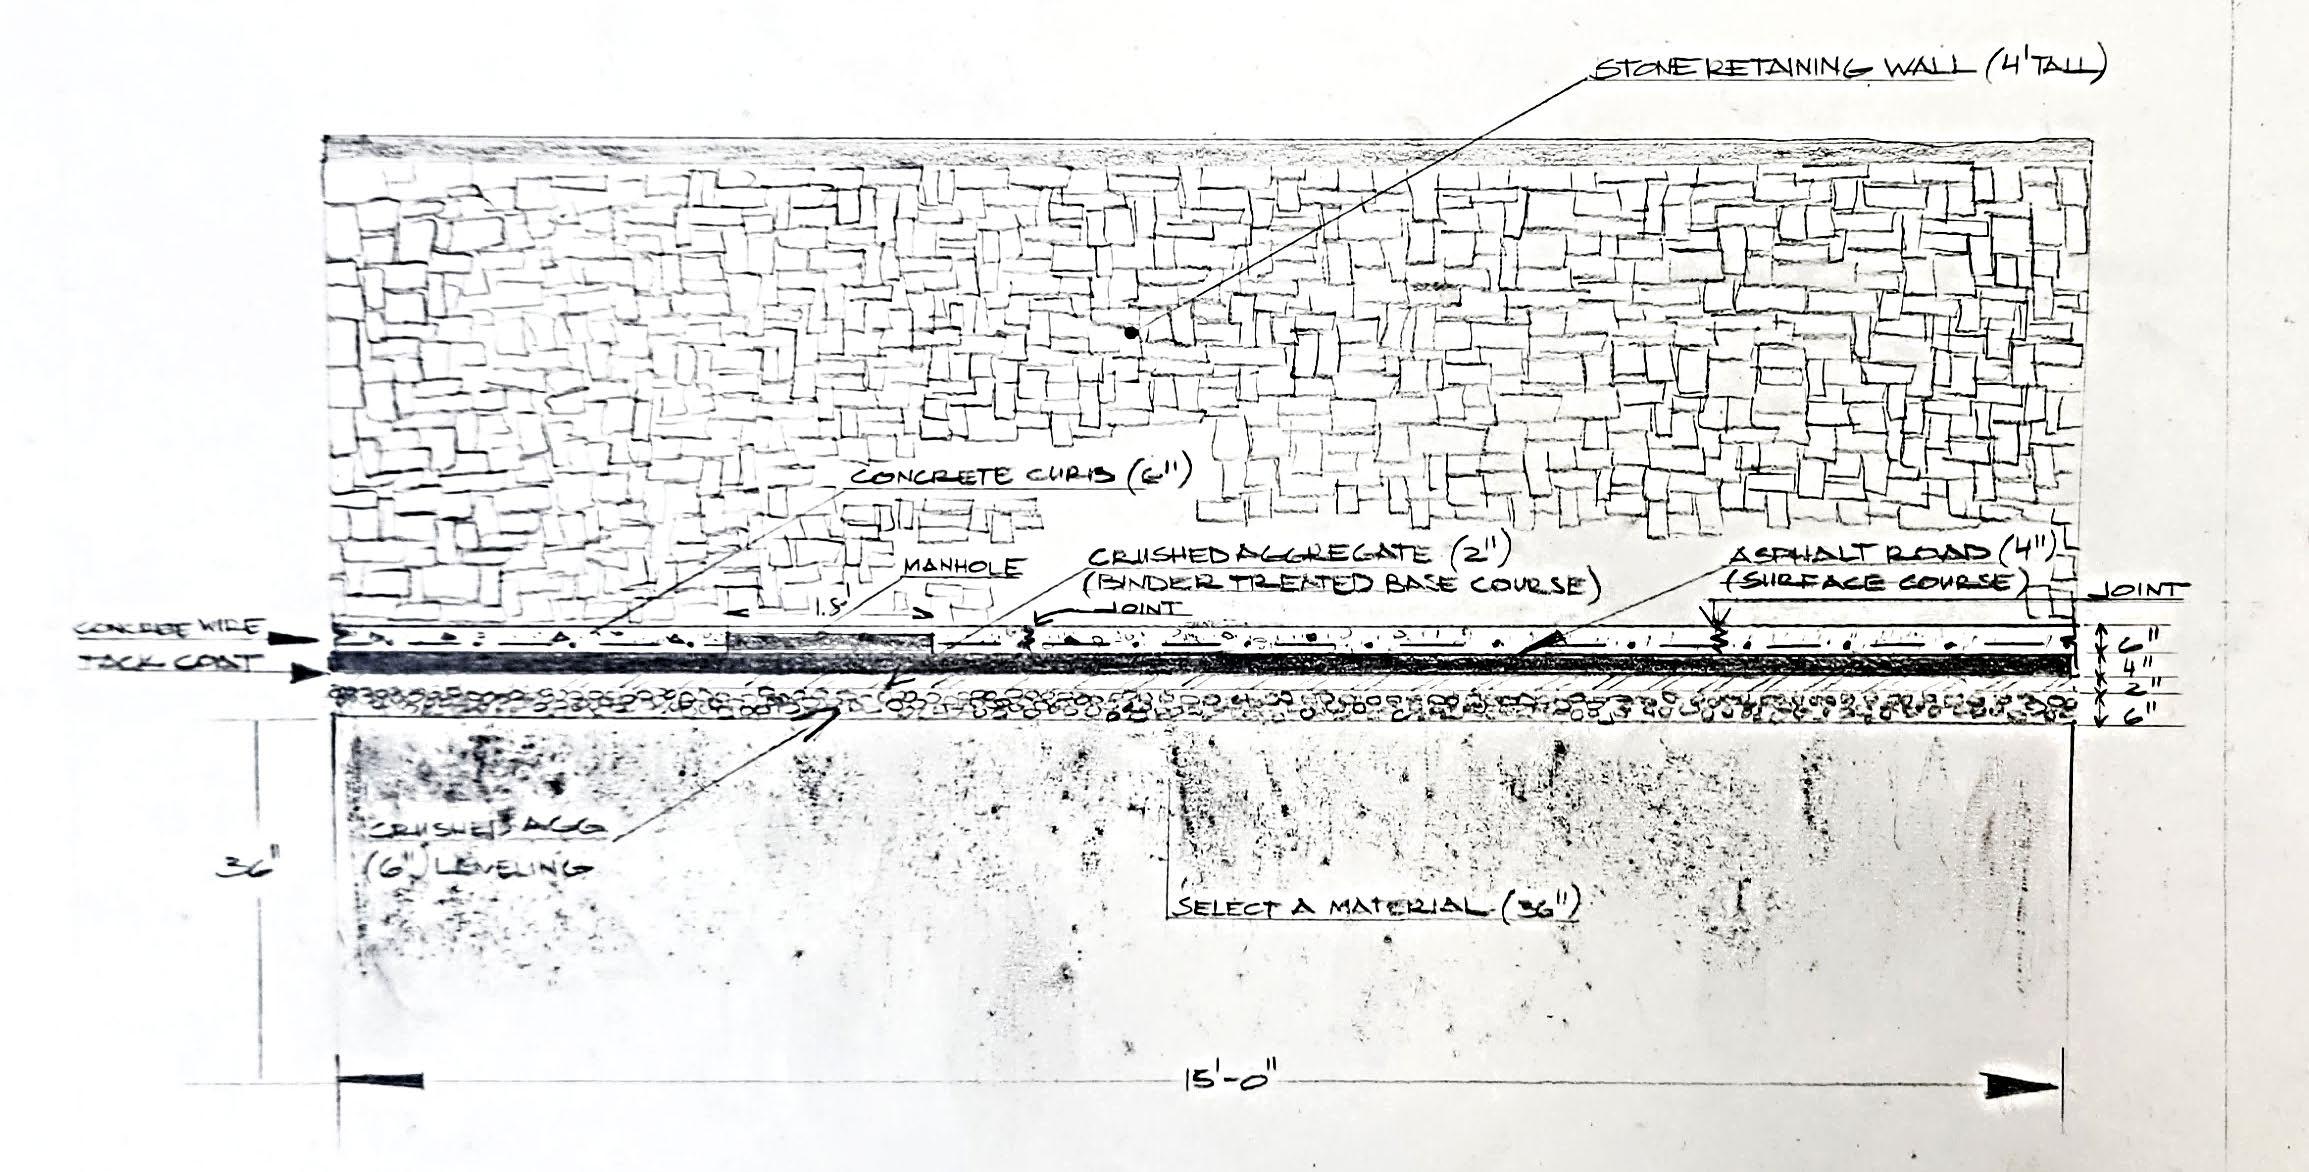 STONE RETAINING WALL (4' TALL)
CONCRETE CURB (6")
MANHOLE
1.5'
CRUSHED AGGREGATE (2")
(BINDER TREATED BASE COURSE)
JOINT
ASPHALT ROAD (4")
(SURFACE COURSE)
JOINT
CONCRETE WIRE
TACK COAT
6"
4"
2"
6"
CRUSHED AGG
(6") LEVELING
36"
SELECT A MATERIAL (36")
15'-0"